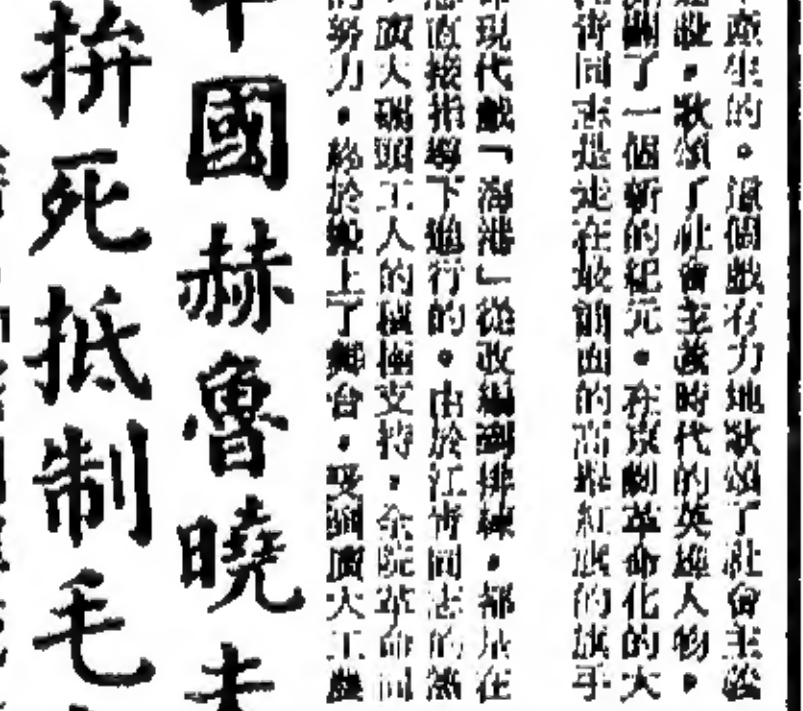 產生的。這個戲有力地歌頌了社會主義
，歌頌了社會主義時代的英雄人物，
闢了一個新的紀元。在京劇革命化的大
青同志是走在最前面的高舉紅旗的旗手
現代戲「海港」從改編到排練，都是在
直接指導下進行的。由於江青同志的
，廣大碼頭工人的積極支持，全院革命同
努力，終於搬上了舞台，受到廣大工農
中國赫魯曉夫
拚死抵制毛